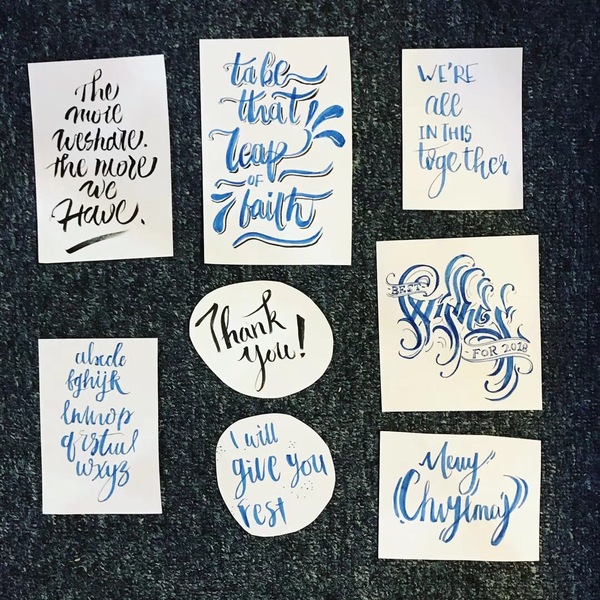 The
more
weshare.
the more
we
Have.
take
that
leap
OF
faith
WE'RE
all
IN THIS
together
Thank
You!
BEST
Wishes
FOR 2018
abcde
fghijk
lmnop
qrstuv
wxyz
I will
give you
rest
Merry
Christmas